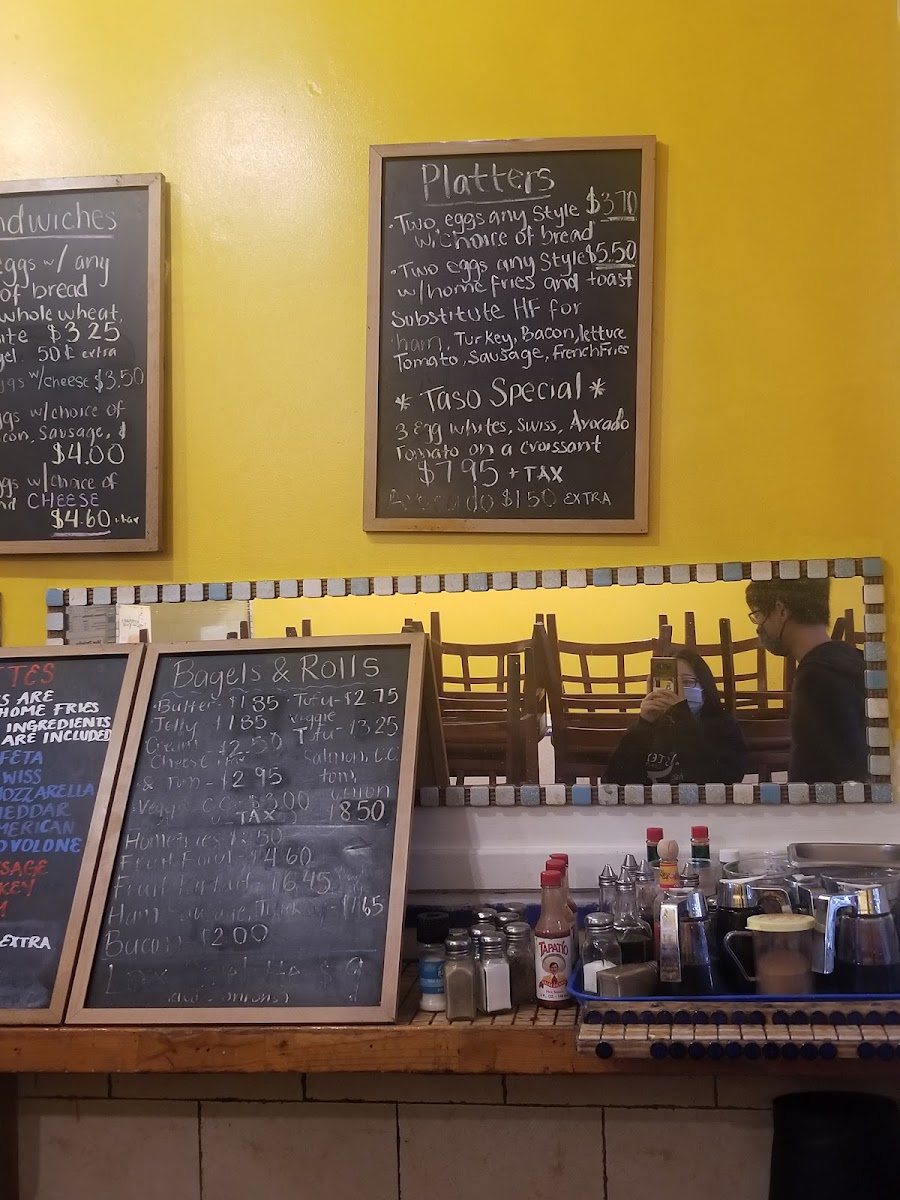 ndwiches
eggs w/ any
of bread
whole wheat,
ite $3.25
gel 50¢ extra
ggs w/cheese $3.50
ggs w/choice of
con, Sausage, $
$4.00
ggs w/choice of
nd CHEESE
$4.60 +tax
Platters
• Two eggs any Style $3.70
w. choice of bread
• Two eggs any Style $5.50
w/home fries and toast
Substitute HF for
ham, Turkey, Bacon, lettuce
Tomato, Sausage, French Fries
* Taso Special *
3 Egg whites, Swiss, Avocado
Tomato on a croissant
$7.95 + TAX
Avocado $1.50 EXTRA
TES
S ARE
HOME FRIES
INGREDIENTS
ARE INCLUDED
FETA
WISS
MOZZARELLA
HEDDAR
MERICAN
OVOLONE
SAGE
KEY
M
EXTRA
Bagels & Rolls
Butter $1.85 Tofu-$2.75
Jelly $1.85 Veggie
Cream $2.50 Tofu-$3.25
Cheese Salmon, C.C.
& Tom - $2.95 tom,
Veggie C.C. $3.00 onion
TAX 18.50
Homefries
$4.60
Fruit $6.45
Ham Sausage, Turkey
Bacon $2.00
TAPATIO